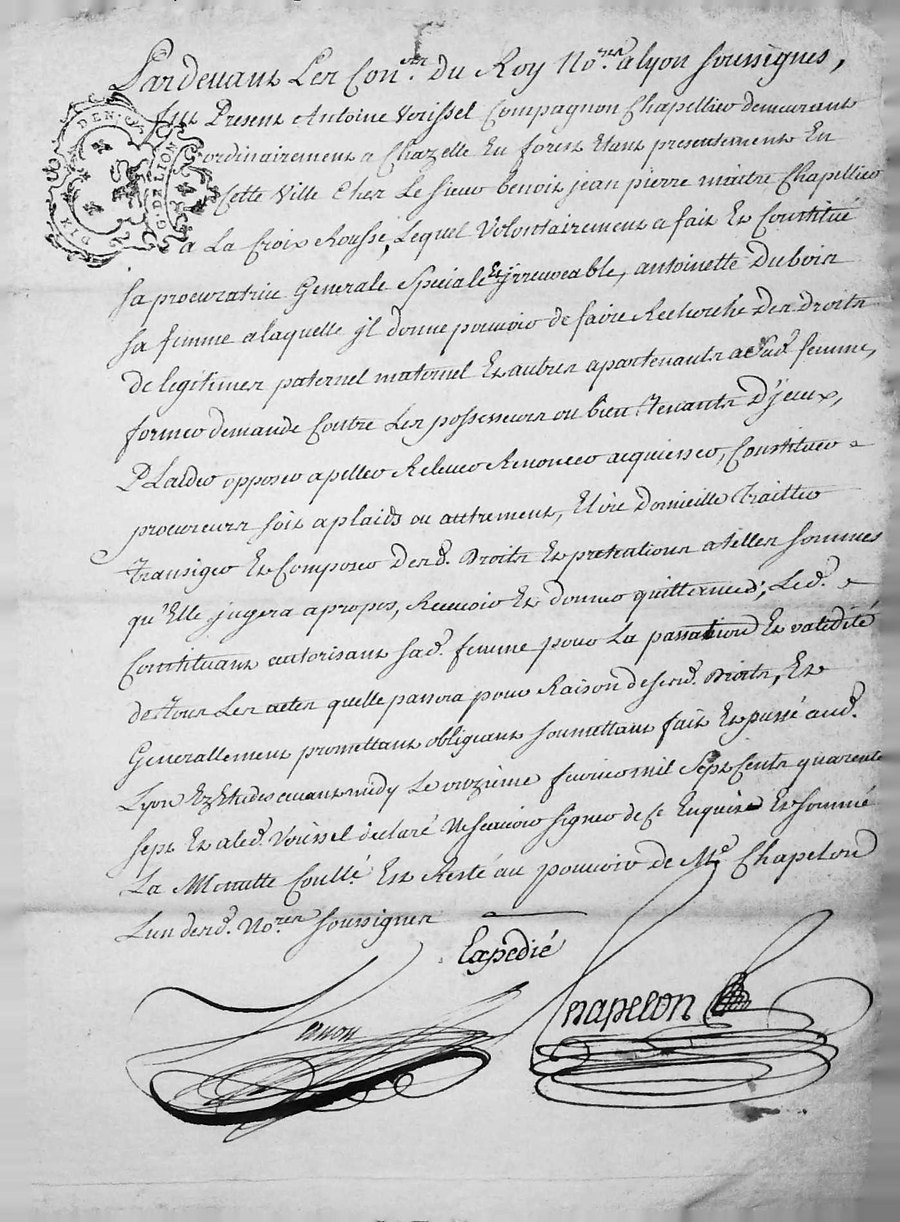 Pardevant Les Con.ers du Roy No.res a lyon soussignes,
fut Present Antoine Voissel Compagnon Chapellier demeurant
ordinairement a Chazelle En forest Etant presentement En
Cette Ville Chez Le sieur benoit jean pierre maitre Chapellier
a La Croix Rousse, Lequel Volontairement a fait Et Constitué
sa procuratrice Generale Speciale Et jrreuocable, antoinette Dubois
sa femme a laquelle jl donne pouuoir de faire Recherche Des Droits
de legitimes paternel maternel Et autres apartenants a sad. femme,
former demande Contre Les possesseurs ou bien Tenants D'jceux,
PLaider opposer apeller Releuer Renoncer acquiescer, Constituer
procureurs soit a plaids ou autrement, Elire Domicille Traitter
Transiger Et Composer Desd. Droits Et pretentions a telles sommes
qu'Elle jugera a propos, Receuoir Et donner quittances, Led.
Constituant autorisant sad. femme pour La passation Et validité
de Tous Les actes quelle passera pour Raison de sesd. Droits, Et
Generallement promettant obligeant soumettant fait Et passé aud.
Lyon Ez Etudes auant midy Le onzieme feurier mil Sept Cents quarente
sept Et a led. Voissel declaré Ne scauoir signer de ce Enquis Et sommé
La Minutte Coullé Est Resté au pouuoir de Me. Chapelon
Lun desd. No.res soussignes
Expedié
Chapelon
DEN.
G. DE LION
DIX